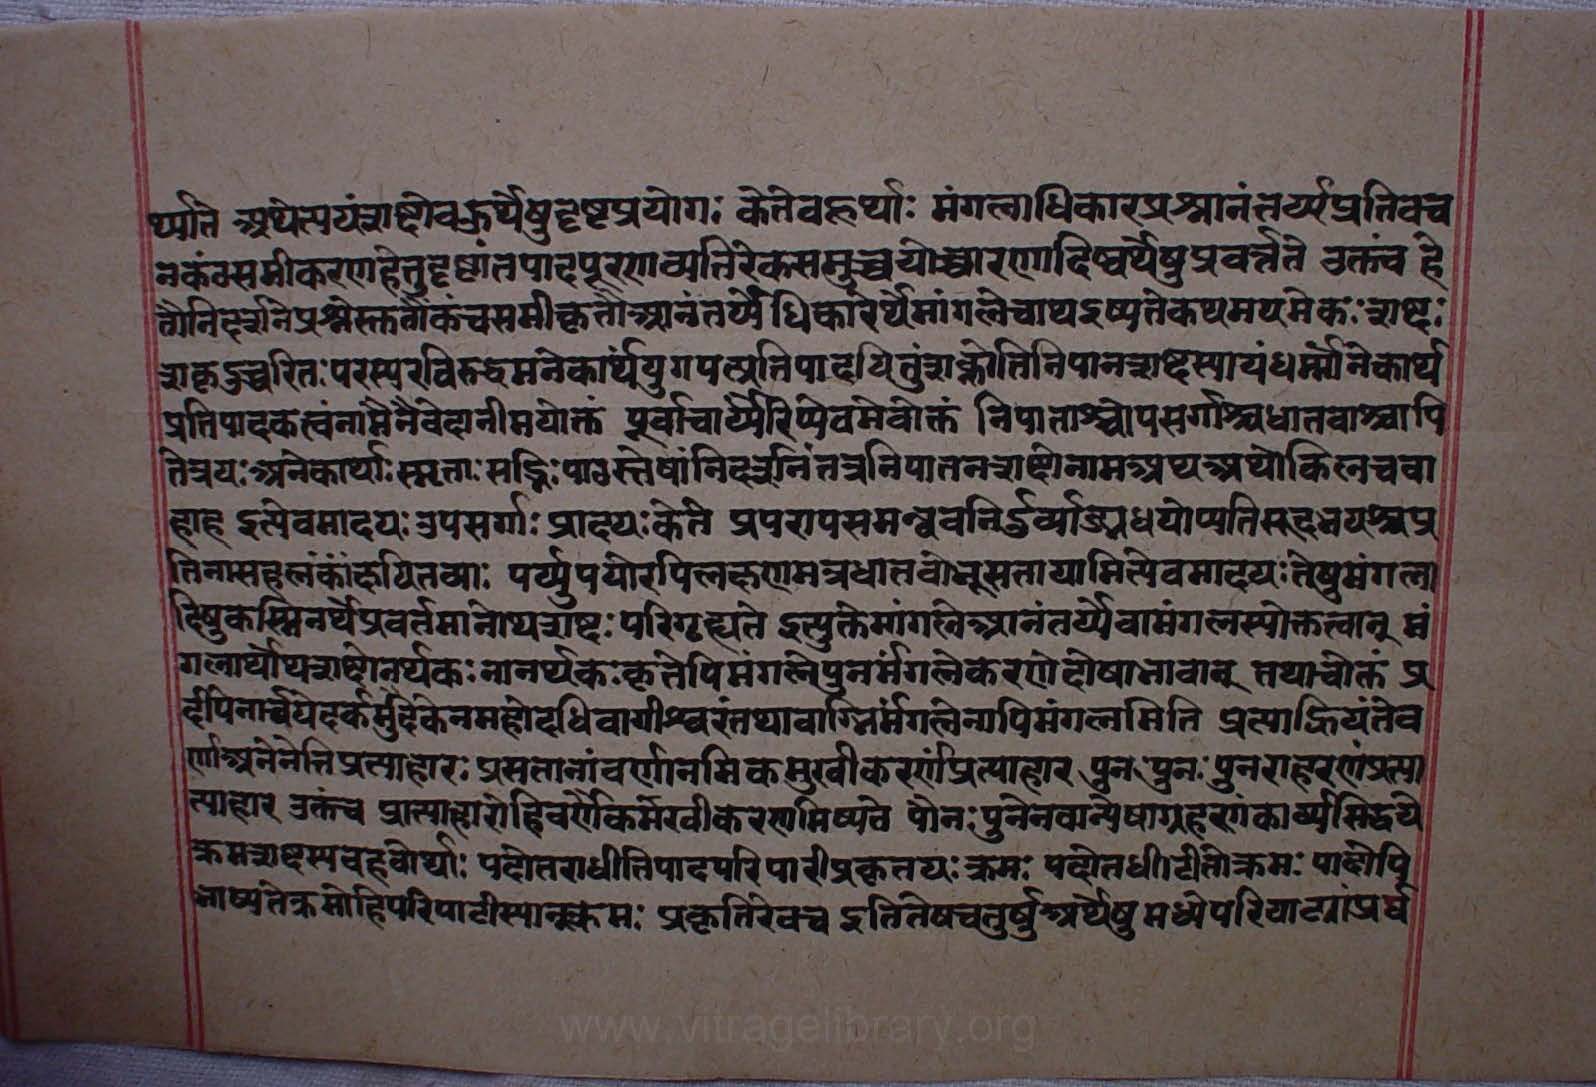 र्थ्यते अथेत्ययंशब्दोबह्वर्थेषुदृष्टप्रयोगः केतेबह्वर्थाः मंगलाधिकारप्रश्नानंतर्य्यप्रतिवच
नकंठसमीकरणहेतुदृष्टांतपादपूरणव्यतिरेकसमुच्चयोच्चारणादिष्वर्थेषुप्रवर्त्तते उक्तंच हे
तौनिदर्शनेप्रश्नेस्तुतौकंचसमीकृतौआनंतर्य्येधिकारेर्थेमांगलेचाथइष्यतेकथमयमेकःशब्दः
शकृदुच्चरितःपरस्परविरुद्धमनेकार्थंयुगपत्प्रतिपादयितुंशक्नोतिनिपातशब्दस्यायंधर्म्मोनेकार्थ
प्रतिपादकत्वंनामैनैवेदानीमयोक्तं पूर्वाचार्य्यैरिप्येवमेवोक्तं निपाताश्चोपसर्गाश्चधातवाश्चापि
तेत्रयःअनेकार्थाःस्मृताःसद्भिःपाठस्तेषांनिदर्शनंतत्रनिपातनशब्दोनामअथअथोकिलचवा
हाह इत्येवमादयः उपसर्गाः प्रादयःकेते प्रपरापसमन्ववनिर्दुर्व्याङ्न्यधयोप्यतिसूदभयश्चप्र
तिनासहलंकांदयितव्याः पर्य्युपयोरपिलक्षणमत्रधातवोभूसतायामित्येवमादयःतेषुमंगला
दिषुकस्मिनर्थेप्रवर्तमानोथशब्दःपरिगृह्यते इत्युक्तेमांगलेआनंतर्य्येवामंगलस्योक्तत्वात् मं
गलार्थोथशब्दोनर्थकःनानर्थकःकृतेपिमंगलेपुनर्मंगलेकरणेदोषाभावात् तथाचोक्तं प्र
दीपेनार्च्चयेदर्कमुदकेनमहोदधिंवागीश्वरंतथावाग्भिर्मंगलेनापिमंगलमिति प्रत्याह्रियंतेव
र्णाअनेनेतिप्रत्याहारः प्रसतानांवर्णानमिकमुखीकरणंप्रत्याहार पुनःपुनःपुनराहरणंप्रत्या
त्याहार उक्तंच प्रात्याहारोहिवर्णैकमेखीकरणमिष्यते पौनःपुनेनवान्येषाग्रहरणंकार्य्यसिद्धये
क्रमशब्दस्यबहवोर्थाः पदोतराधीतिपादपरिपारीप्रकृतयःक्रमः पदोतधीाटीतोक्रमः पादोपि
भाष्यतेक्रमोहिपरिपाटीस्यानुक्रमः प्रकृतिरेवच इतितेषचतुर्षुअर्थेषुमध्येपरिपाट्यांप्रर्व
www.vitragelibrary.org